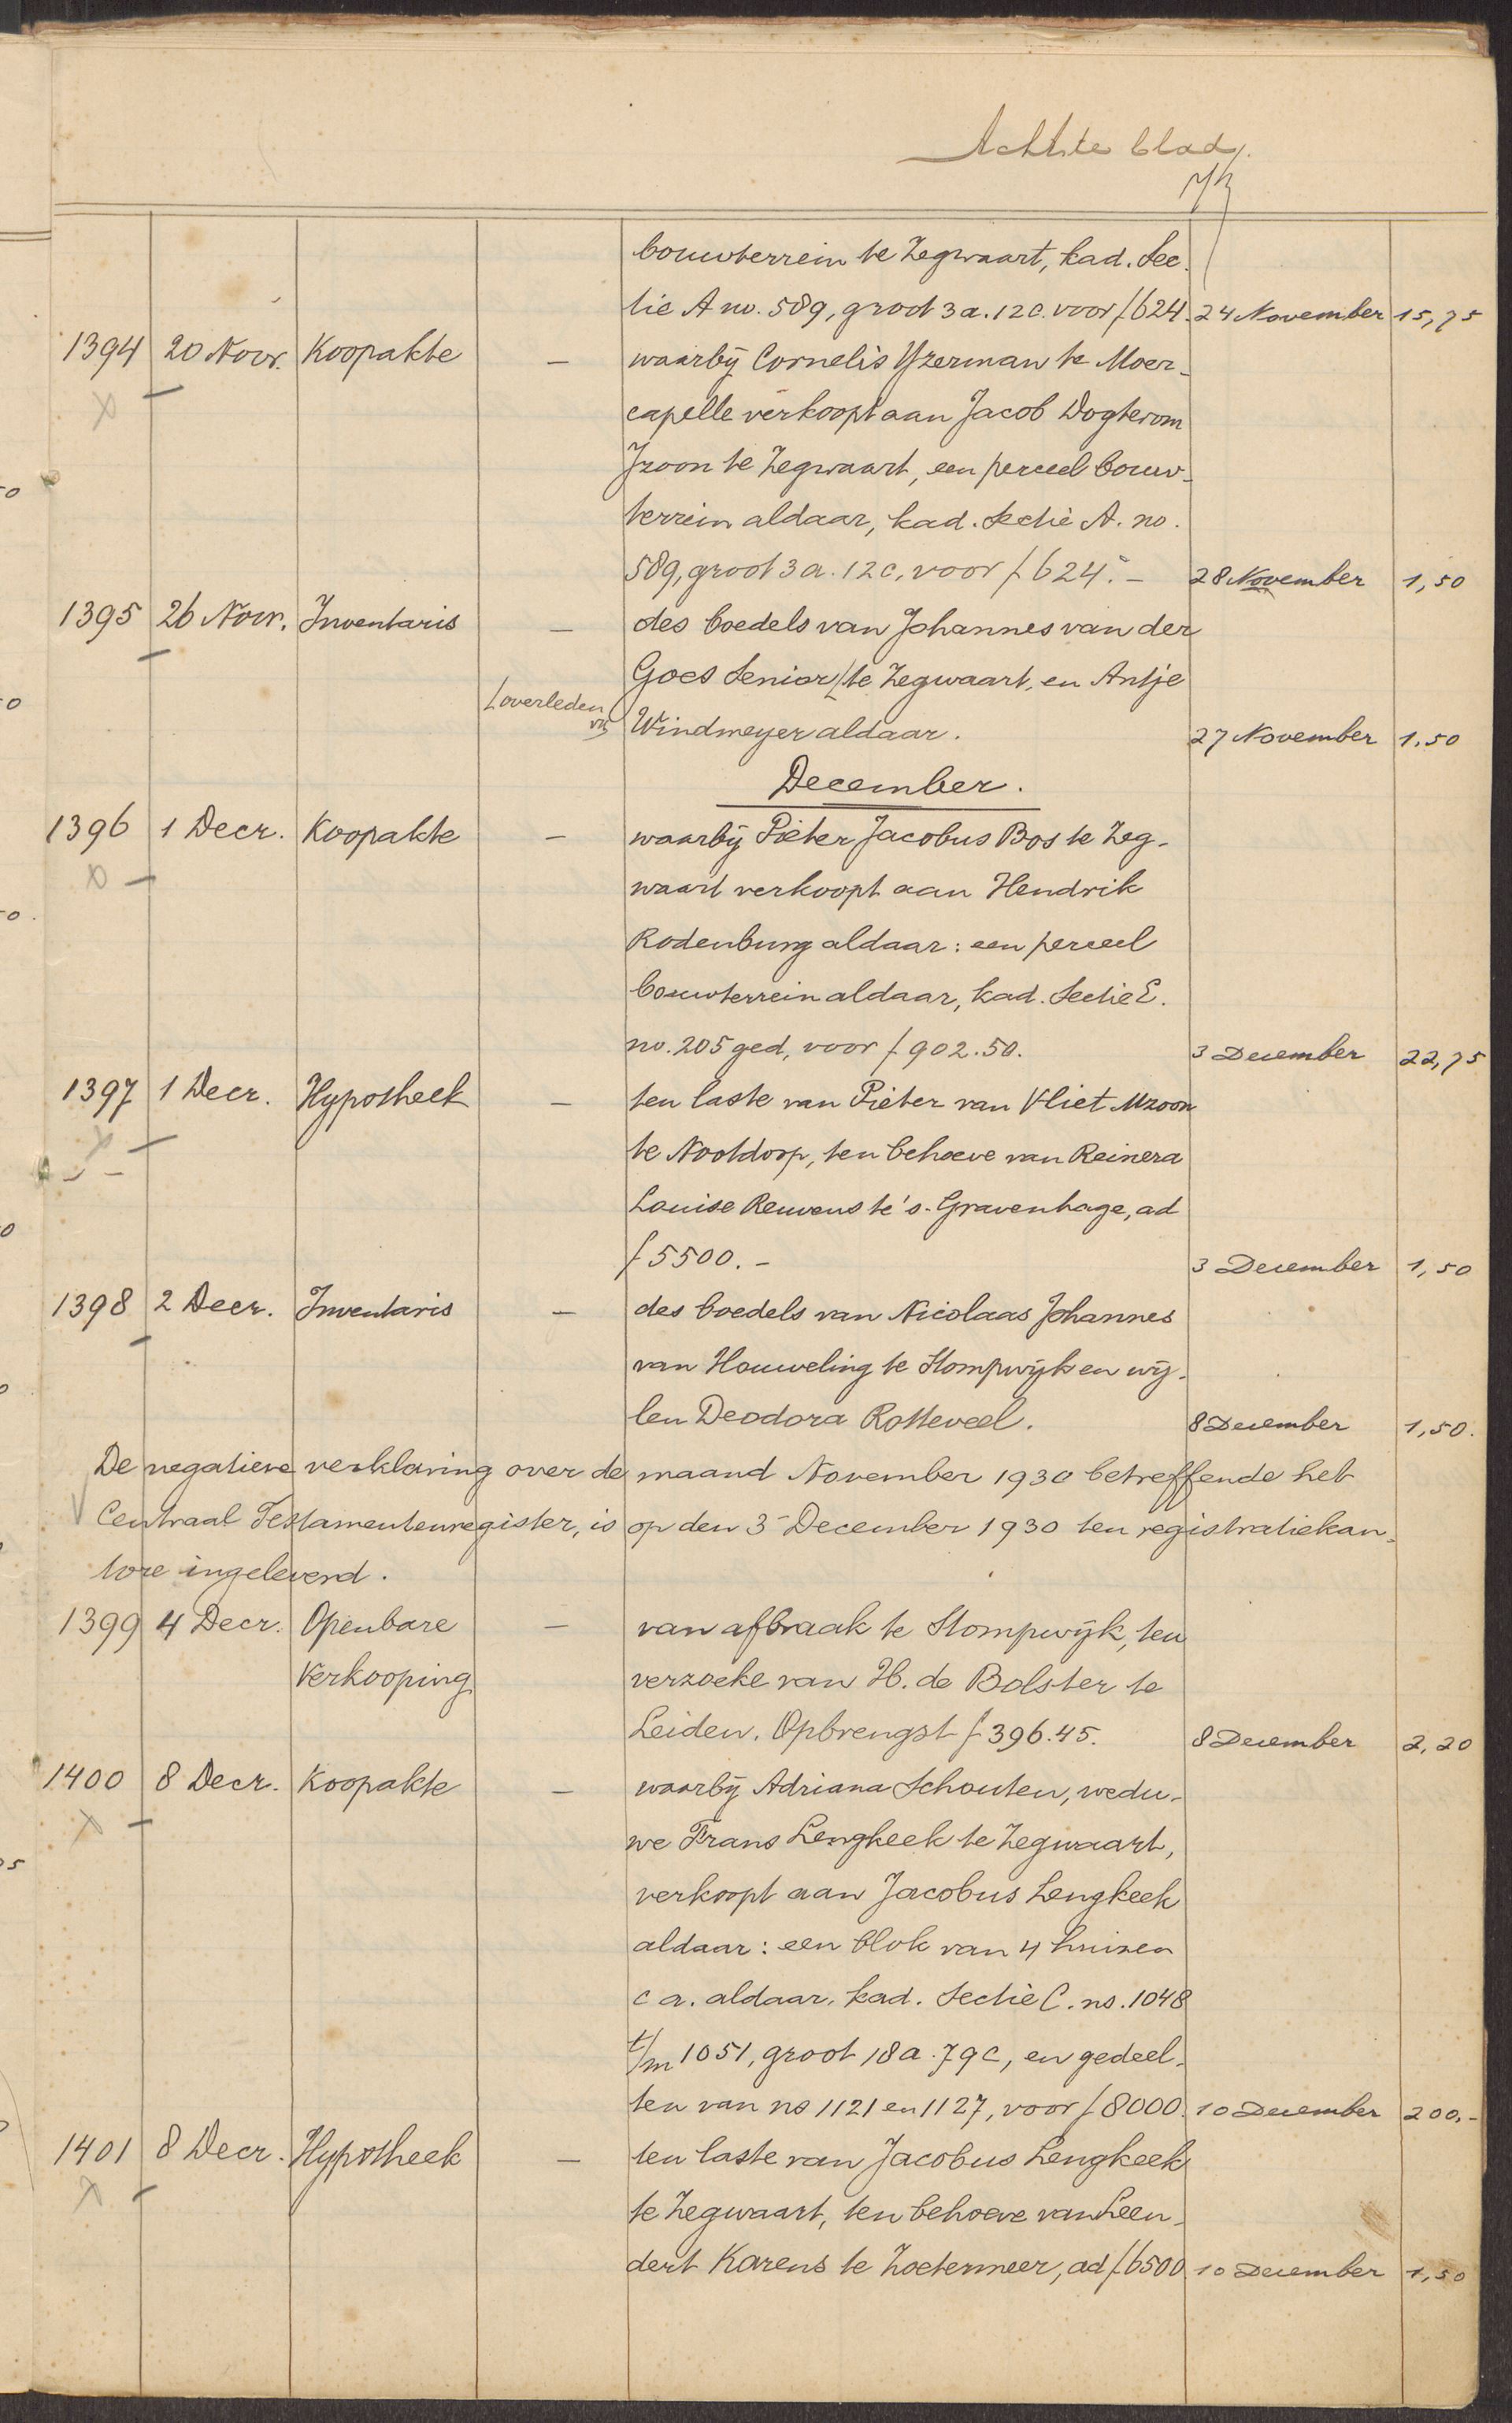 Achtste blad.
bouwterrein te Zegwaart, kad. Sec-
tie A no. 589, groot 3 a. 12 c. voor f 624. 24 November 15,75
1394 20 Novr. Koopakte — waarbij Cornelis Yzerman te Moer-
capelle verkoopt aan Jacob Dogterom
Jzoon te Zegwaart, een perceel bouw-
terrein aldaar, kad. Sectie A. no.
589, groot 3 a. 12 c, voor f 624.- 28 November 1,50
1395 26 Novr. Inventaris — des boedels van Johannes van der
Goes Senior ⌊ te Zegwaart, en Antje
⌊ overleden
Windmeyer aldaar. 27 November 1.50
December.
1396 1 Decr. Koopakte — waarbij Pieter Jacobus Bos te Zeg-
waart verkoopt aan Hendrik
Rodenburg aldaar: een perceel
bouwterrein aldaar, kad. Sectie E.
no. 205 ged, voor f 902.50. 3 December 22,75
1397 1 Decr. Hypotheek — ten laste van Pieter van Vliet Mzoon
te Nootdorp, ten behoeve van Reinera
Louise Reuvens te 's-Gravenhage, ad
f 5500.- 3 December 1,50
1398 2 Decr. Inventaris — des boedels van Nicolaas Johannes
van Houweling te Stompwijk en wij-
len Deodora Rotteveel. 8 December 1,50.
De negatieve verklaring over de maand November 1930 betreffende het
Centraal Testamentenregister, is op den 3 December 1930 ten registratiekan-
tore ingeleverd.
1399 4 Decr. Openbare — van afbraak te Stompwijk, ten
Verkooping verzoeke van H. de Bolster te
Leiden. Opbrengst f 396.45. 8 December 2,20
1400 8 Decr. Koopakte — waarbij Adriana Schouten, wedu-
we Frans Lengkeek te Zegwaart,
verkoopt aan Jacobus Lengkeek
aldaar: een blok van 4 huizen
c a. aldaar, kad. Sectie C. no. 1048
t/m 1051, groot 18 a. 79 c, en gedeel-
ten van no 1121 en 1127, voor f 8000. 10 December 200.-
1401 8 Decr. Hypotheek — ten laste van Jacobus Lengkeek
te Zegwaart, ten behoeve van Leen-
dert Karens te Zoetermeer, ad f 6500 10 December 1,50